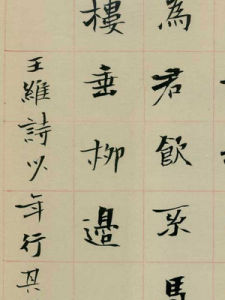 為君飲系馬
樓垂柳邊
王維詩少年行其